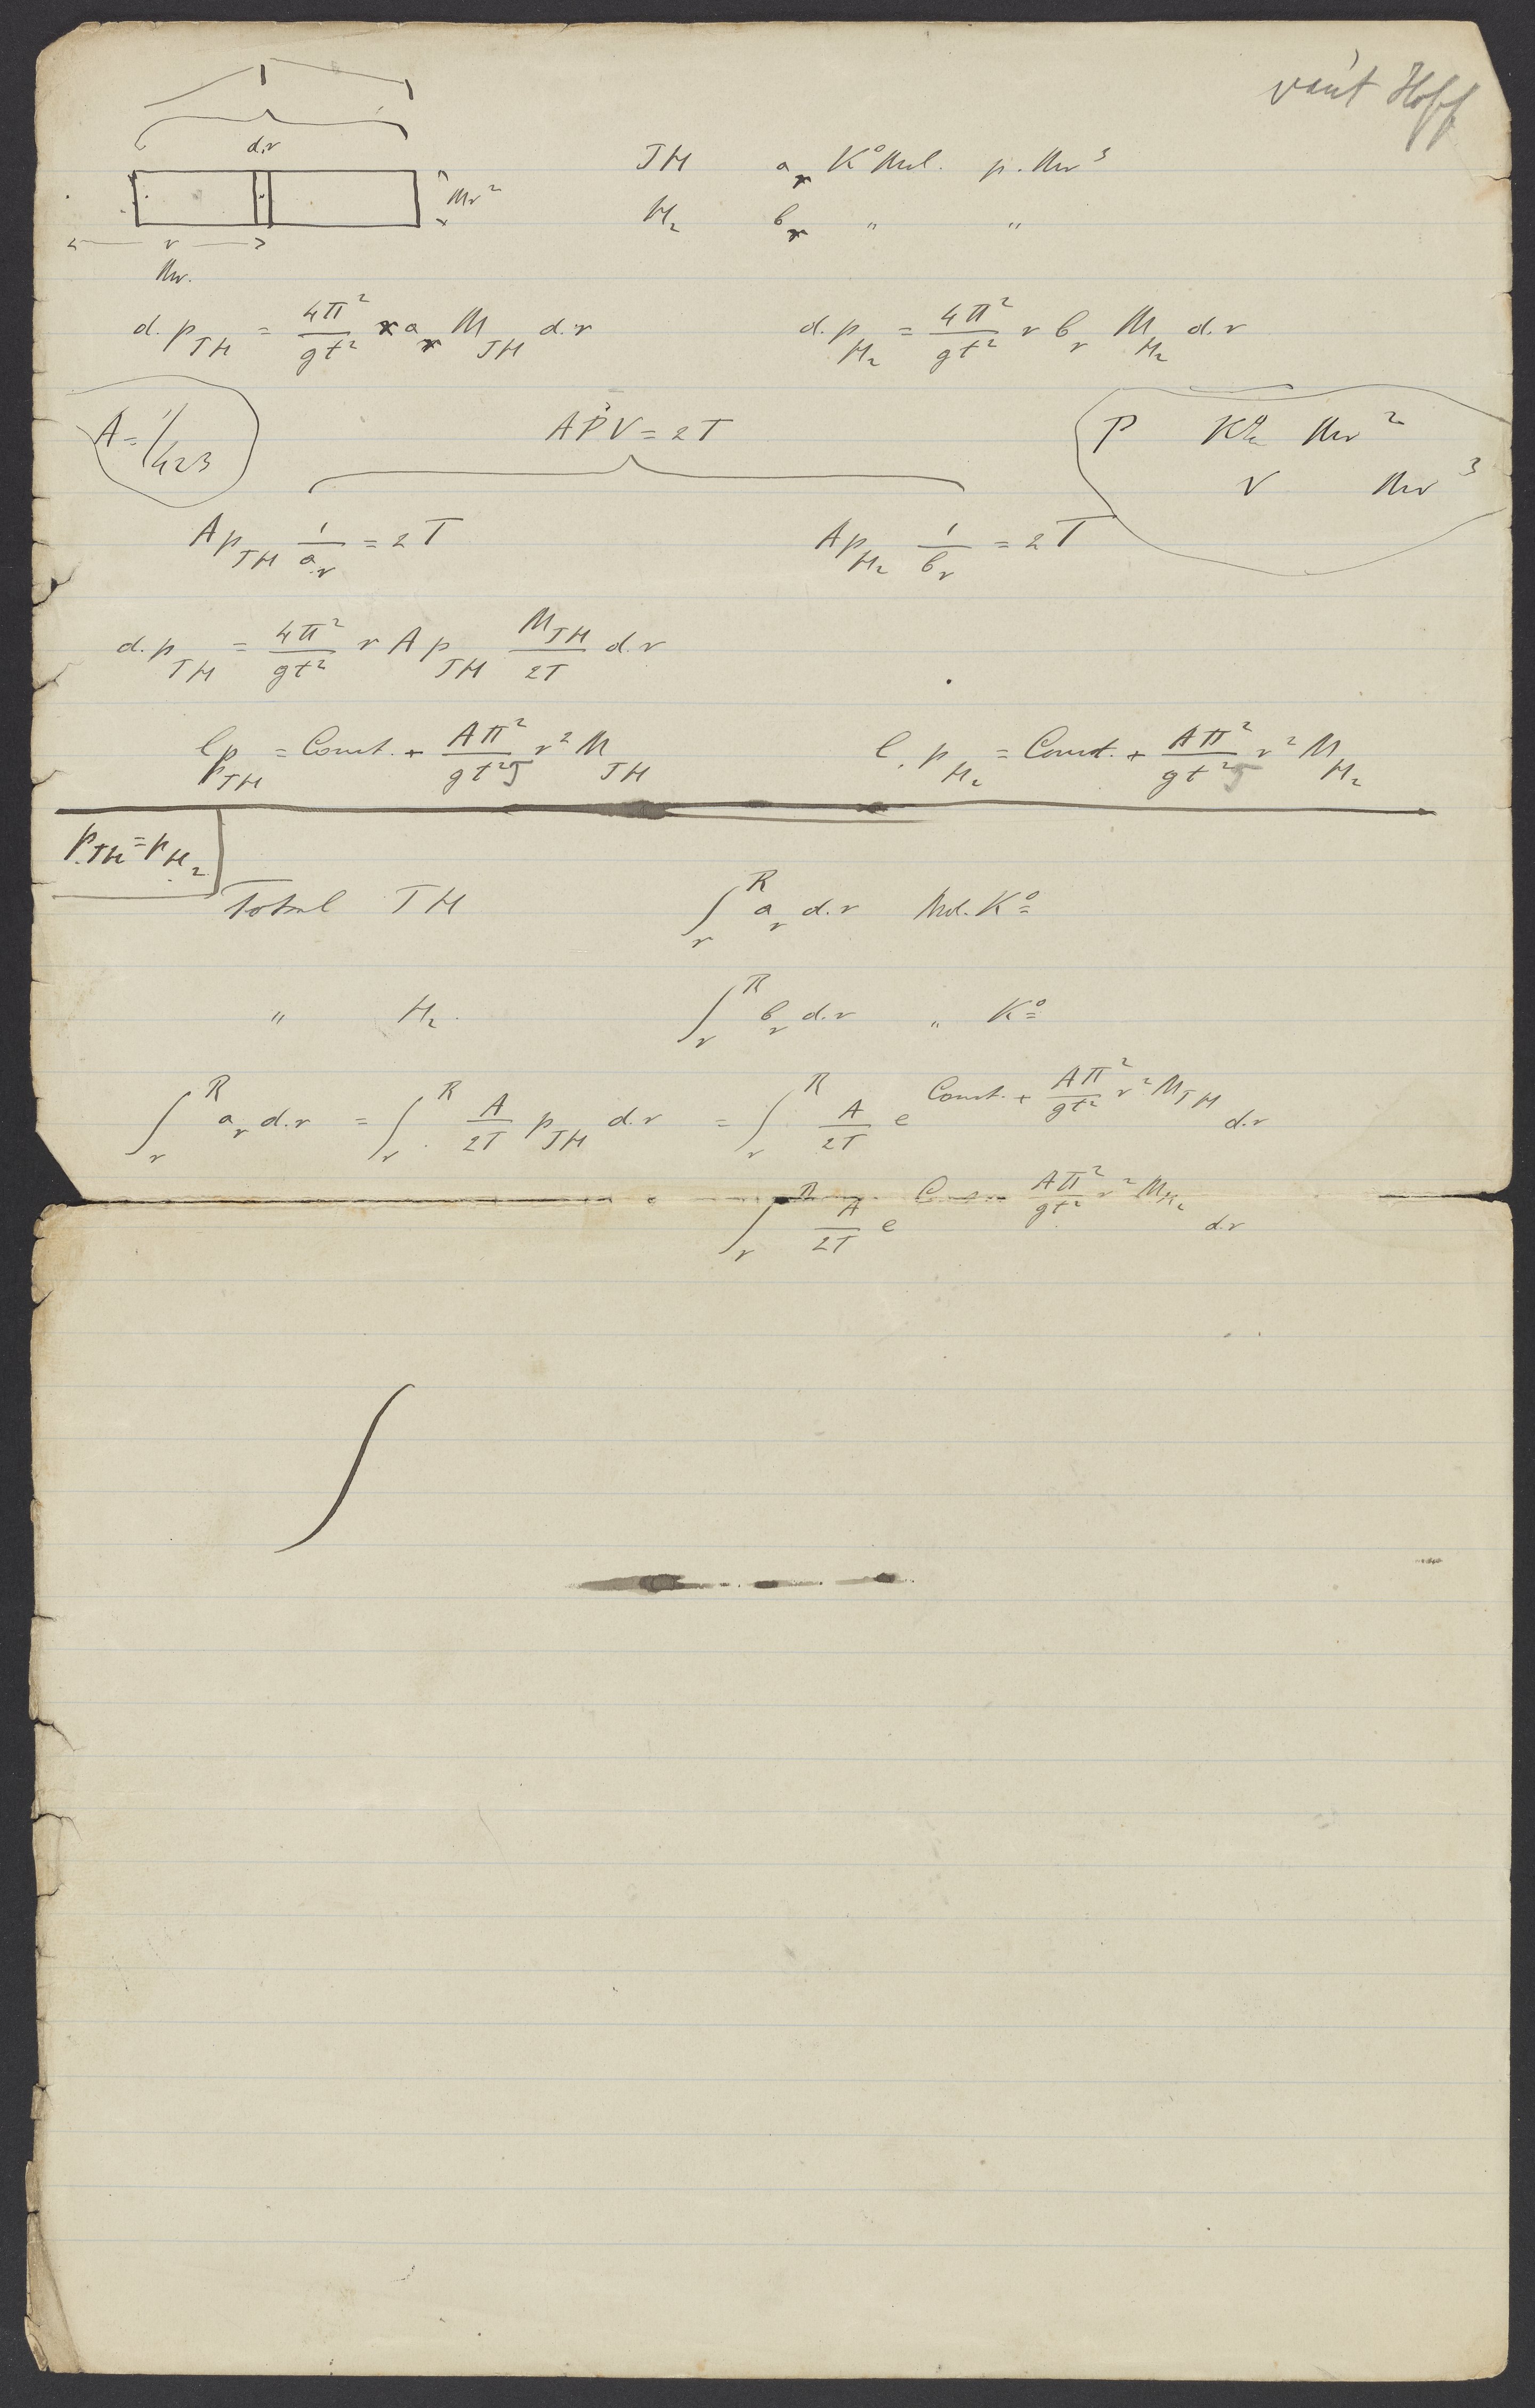 van't Hoff
d.r
JH a_r K^o Mol. p. Mr^3
Mr^2
H_2 b_r " "
r
Mr.
d.p_{JH} = \frac{4π^2}{gt^2} r a_r M_{JH} d.r d.p_{H_2} = \frac{4π^2}{gt^2} r b_r M_{H_2} d.r
A = 1/423 APV = 2T P K^o Mr^2
V Mr^3
A p_{JH} \frac{1}{a_r} = 2T A p_{H_2} \frac{1}{b_r} = 2T
d.p_{JH} = \frac{4π^2}{gt^2} r A p_{JH} \frac{M_{JH}}{2T} d.r
l p_{JH} = Const. + \frac{Aπ^2}{gt^2T} r^2 M_{JH} l. p_{H_2} = Const. + \frac{Aπ^2}{gt^2T} r^2 M_{H_2}
p_{JH} = p_{H_2}
Total JH ∫_r^R a_r d.r Mol. K^o
" H_2. ∫_r^R b_r d.r " K^o
∫_r^R a_r d.r = ∫_r^R \frac{A}{2T} p_{JH} d.r = ∫_r^R \frac{A}{2T} e^{Const. + \frac{Aπ^2}{gt^2} r^2 M_{JH}} d.r
∫_r^R \frac{A}{2T} e^{\frac{Aπ^2}{gt^2} r^2 M_{H_2}} d.r
∫